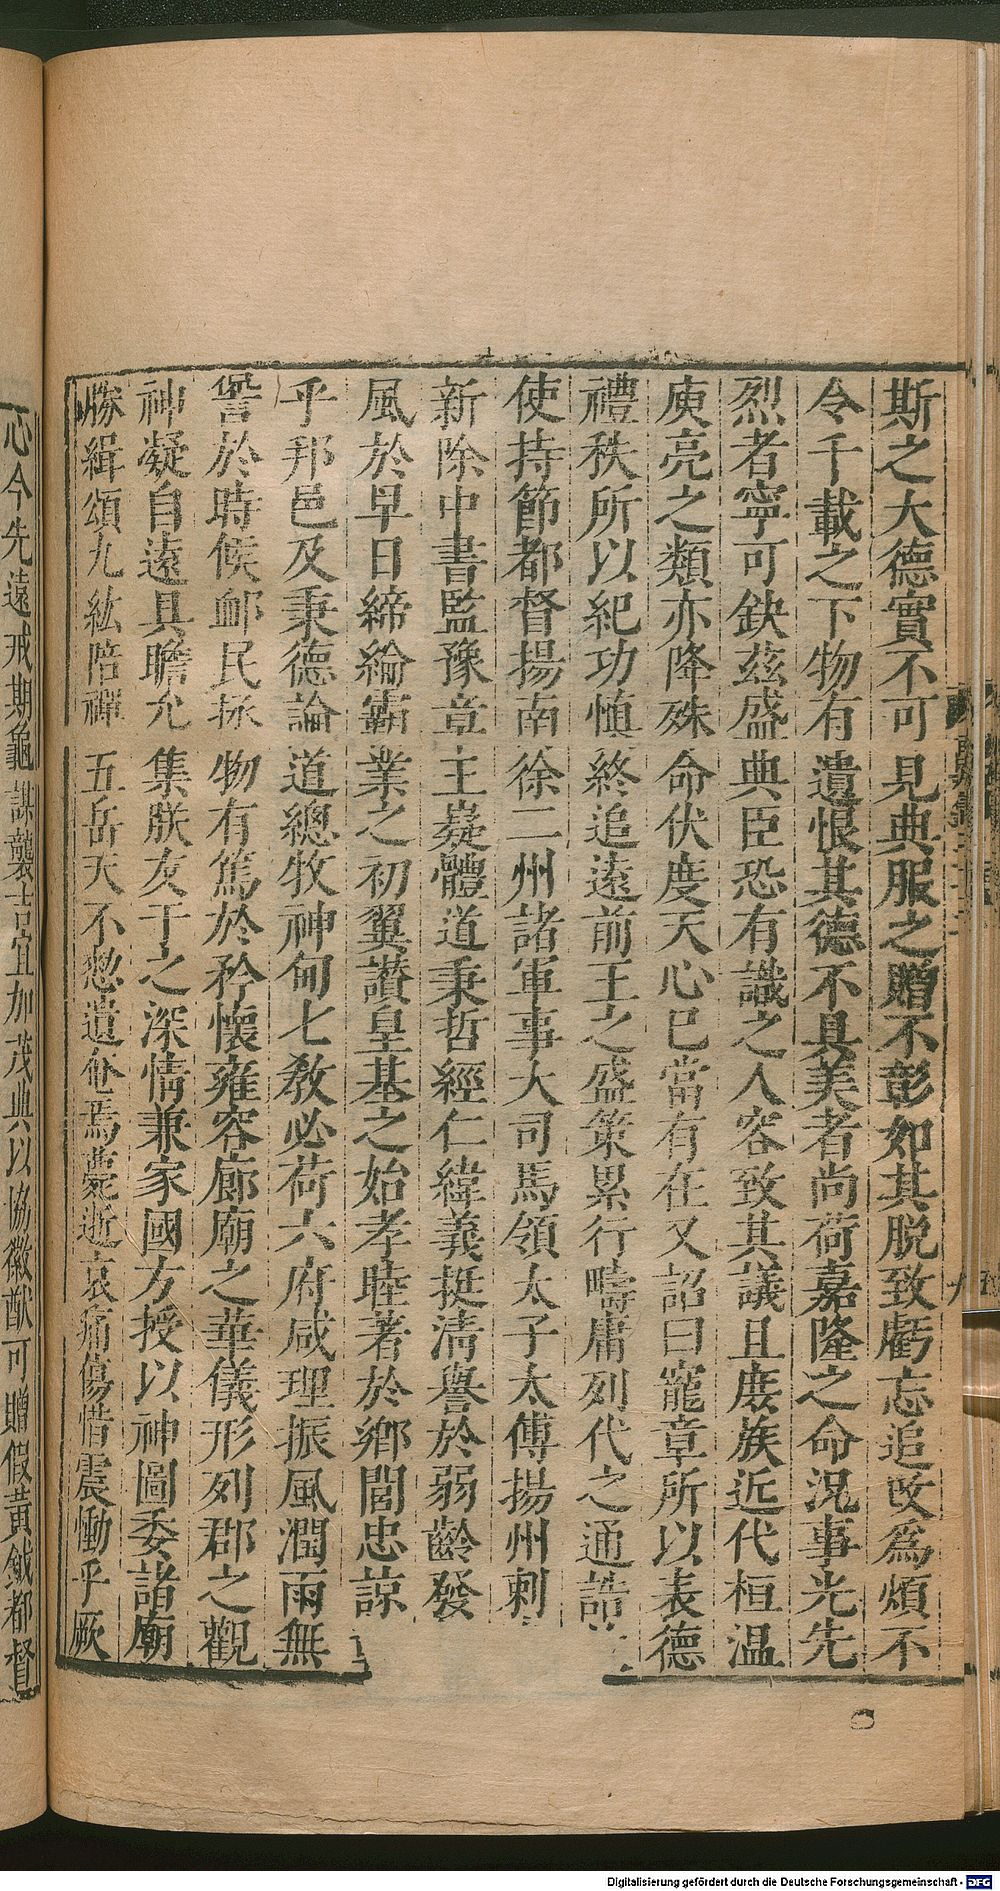 斯之大德實不可見典服之贈不彰如其脫致虧忘追改爲煩不
令千載之下物有遺恨其德不具美者尚荷嘉隆之命況事光先
烈者寧可缺茲盛典臣恐有識之人容致其議且庶族近代桓温
庾亮之類亦降殊命伏度天心已當有在又詔曰寵章所以表德
禮秩所以紀功慎終追遠前王之盛策累行疇庸列代之通誥
使持節都督揚南徐二州諸軍事大司馬領太子太傅揚州刺
新除中書監豫章王嶷體道秉哲經仁緯義挺清譽於弱齡發
風於早日締綸霸業之初翼讚皇基之始孝睦著於鄉閭忠諒
乎邦邑及秉德論道總牧神甸七敎必荷六府咸理振風潤雨無
諐於時候卹民拯物有篤於矜懷雍容廊廟之華儀形列郡之觀
神凝自遠具瞻允集朕友于之深情兼家國方授以神圖委諸廟
勝緝頌九紘陪禪五岳天不憖遺奄焉薨逝哀痛傷惜震慟乎厥
心今先遠戒期龜謀襲吉宜加茂典以協徽猷可贈假黃鉞都督
Digitalisierung gefördert durch die Deutsche Forschungsgemeinschaft - DFG